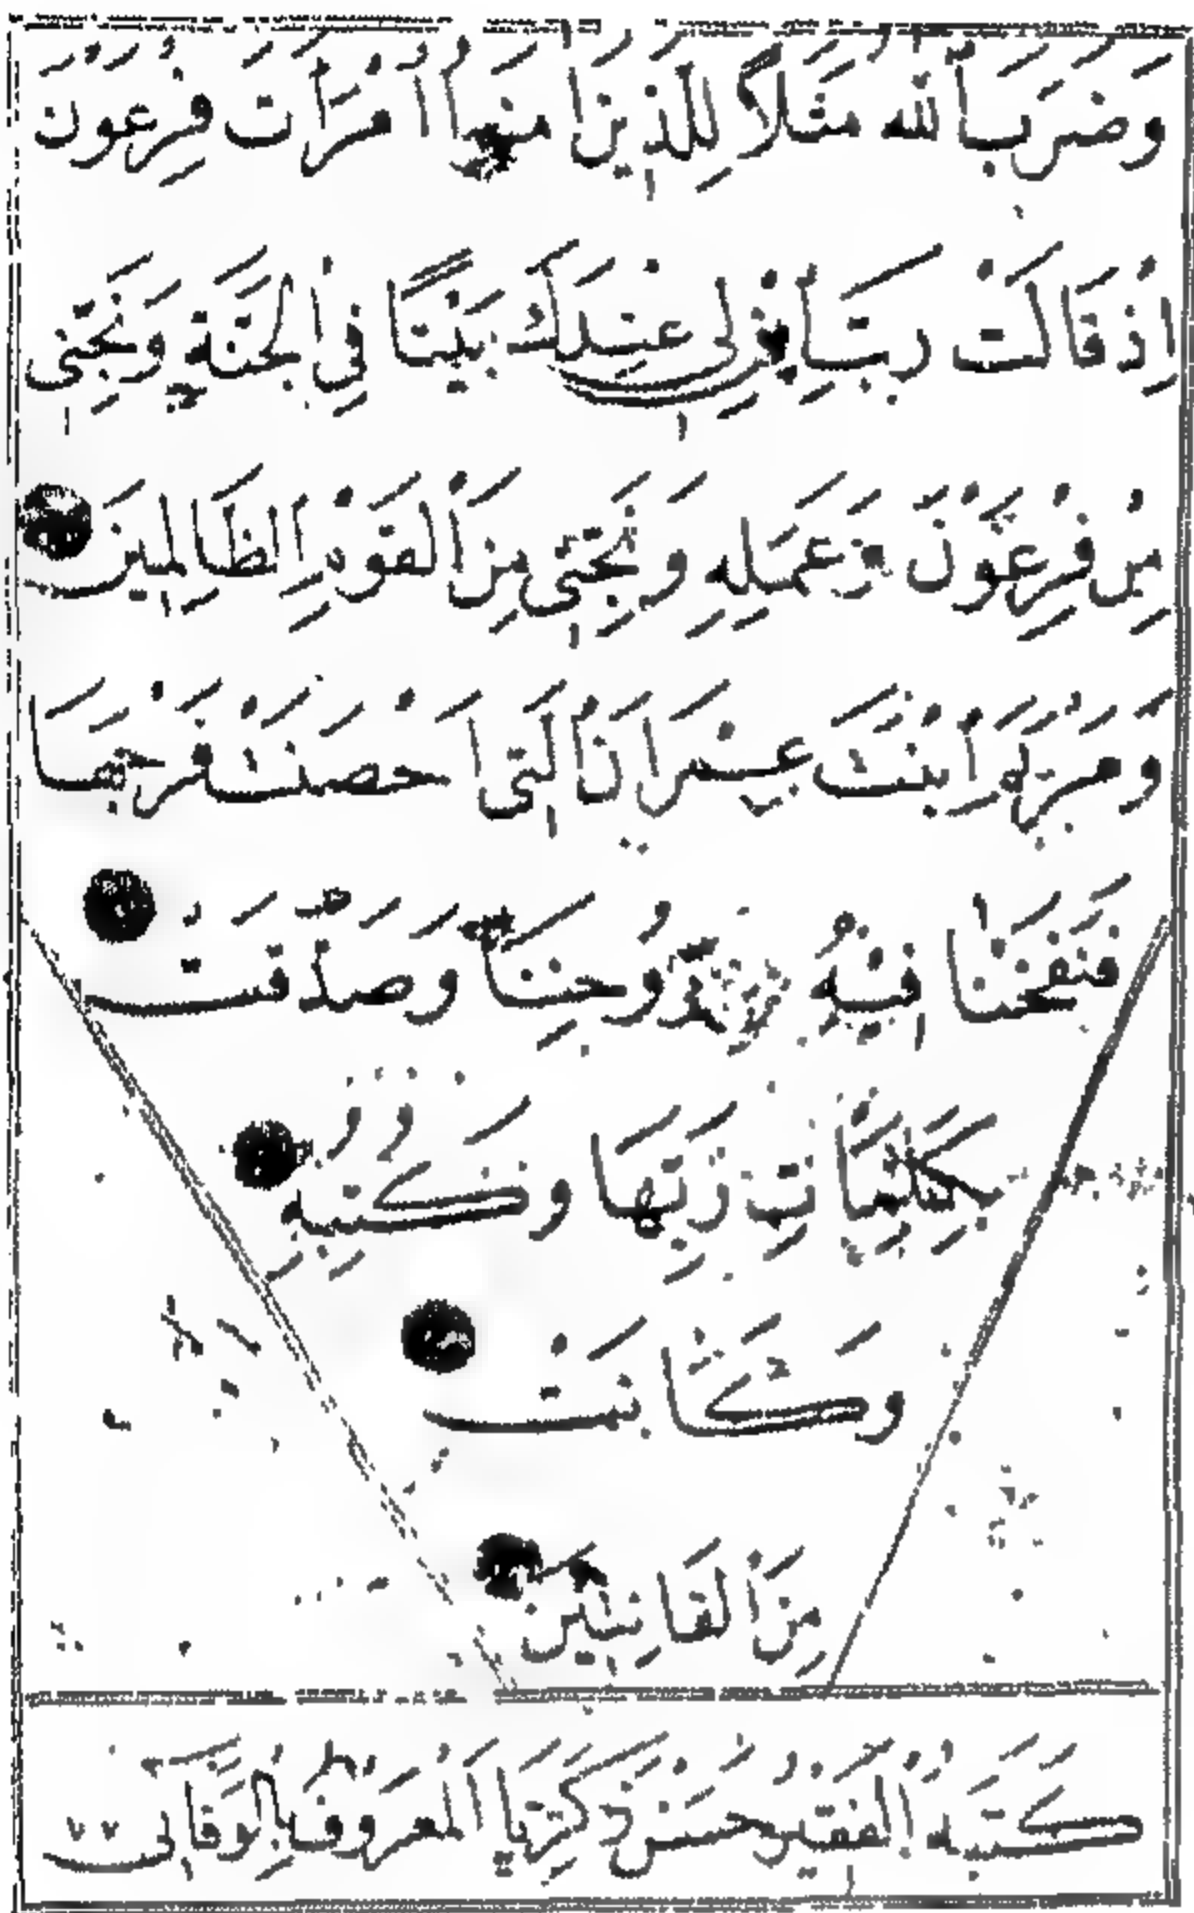 وَضَرَبَ اللهُ مَثَلًا لِلَّذِينَ اٰمَنُوا امْرَأَتَ فِرْعَوْنَ
اِذْ قَالَتْ رَبِّ ابْنِ لِى عِنْدَكَ بَيْتًا فِى الْجَنَّةِ وَنَجِّنِى
مِنْ فِرْعَوْنَ وَعَمَلِهِ وَنَجِّنِى مِنَ الْقَوْمِ الظَّالِمِينَ
وَمَرْيَمَ ابْنَتَ عِمْرَانَ الَّتِى اَحْصَنَتْ فَرْجَهَا
فَنَفَخْنَا فِيهِ مِنْ رُوحِنَا وَصَدَّقَتْ
بِكَلِمَاتِ رَبِّهَا وَكُتُبِهِ
وَكَانَتْ
مِنَ الْقَانِتِينَ
كَتَبَهُ الْفَقِيرُ حَسَنْ زَكَرِيَّا الْمَعْرُوفُ بِالْوَفَائى ٧٧